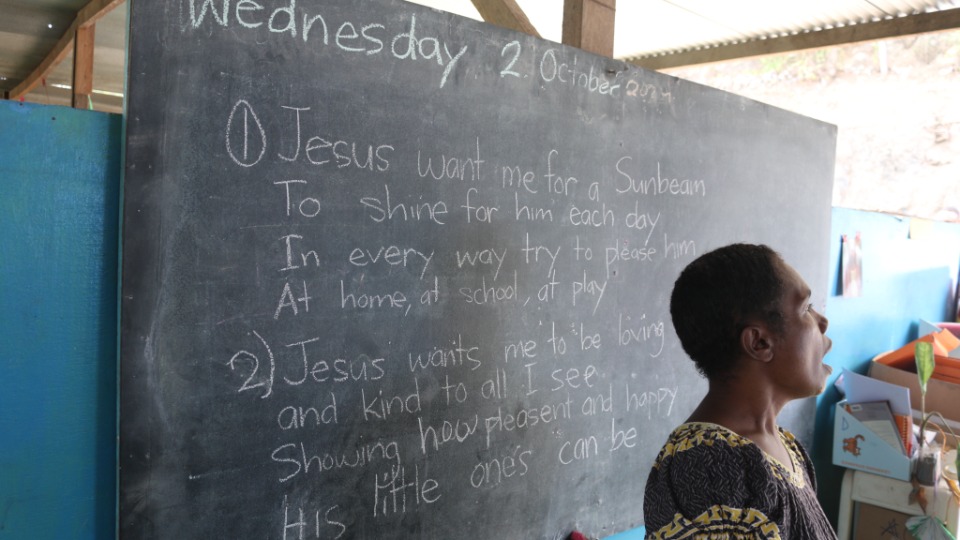 Wednesday 2 October
① Jesus want me for a Sunbeam
To shine for him each day
In every way try to please him
At home, at school, at play
2) Jesus wants me to be loving
and kind to all I see
Showing how pleasent and happy
His little one's can be